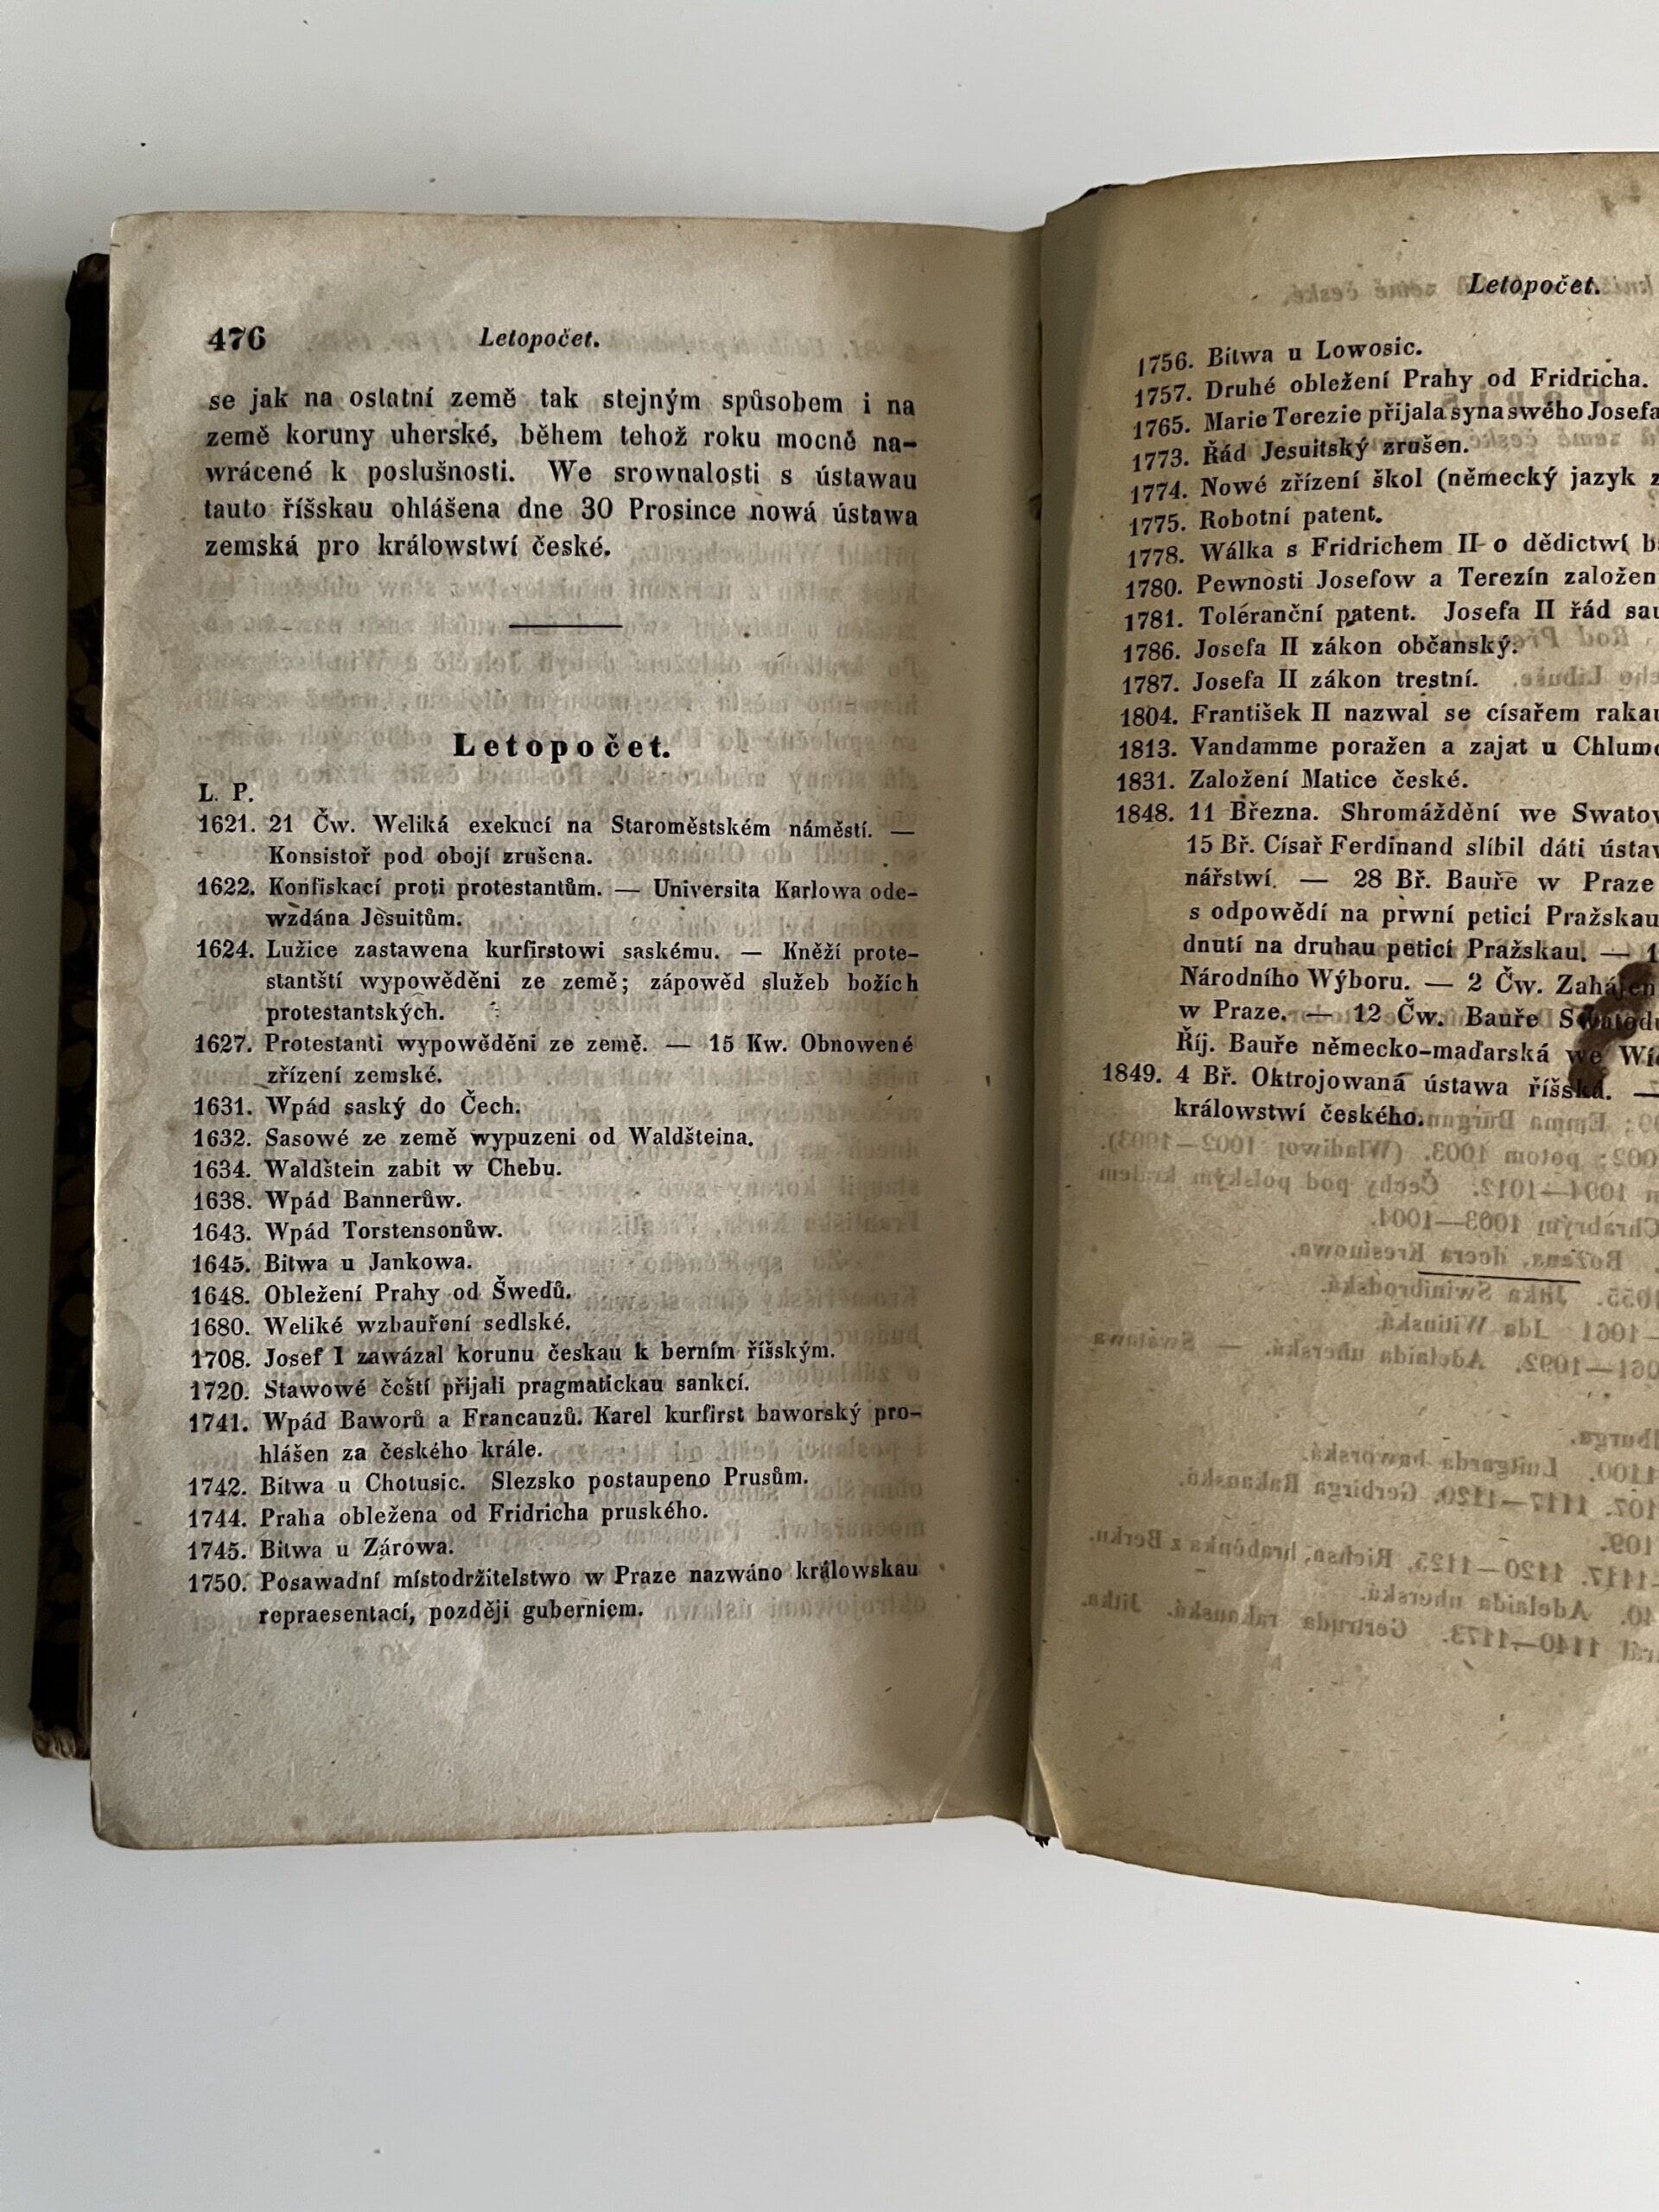 476 Letopočet.
se jak na ostatní země tak stejným spůsobem i na
země koruny uherské, během tehož roku mocně na-
wrácené k poslušnosti. We srownalosti s ústawau
tauto říšskau ohlášena dne 30 Prosince nowá ústawa
zemská pro králowstwí české.
Letopočet.
L. P.
1621. 21 Čw. Weliká exekucí na Staroměstském náměstí. —
Konsistoř pod obojí zrušena.
1622. Konfiskací proti protestantům. — Universita Karlowa ode-
wzdána Jesuitům.
1624. Lužice zastawena kurfirstowi saskému. — Kněží prote-
stantští wypowěděni ze země; zápowěd služeb božích
protestantských.
1627. Protestanti wypowěděni ze země. — 15 Kw. Obnowené
zřízení zemské.
1631. Wpád saský do Čech.
1632. Sasowé ze země wypuzeni od Waldšteina.
1634. Waldštein zabit w Chebu.
1638. Wpád Bannerůw.
1643. Wpád Torstensonůw.
1645. Bitwa u Jankowa.
1648. Obležení Prahy od Šwedů.
1680. Weliké wzbauření sedlské.
1708. Josef I zawázal korunu českau k berním říšským.
1720. Stawowé čeští přijali pragmatickau sankcí.
1741. Wpád Baworů a Francauzů. Karel kurfirst baworský pro-
hlášen za českého krále.
1742. Bitwa u Chotusic. Slezsko postaupeno Prusům.
1744. Praha obležena od Fridricha pruského.
1745. Bitwa u Zárowa.
1750. Posawadní místodržitelstwo w Praze nazwáno králowskau
repraesentací, později guberniem.
Letopočet.
1756. Bitwa u Lowosic.
1757. Druhé obležení Prahy od Fridricha.
1765. Marie Terezie přijala syna swého Josefa
1773. Řád Jesuitský zrušen.
1774. Nowé zřízení škol (německý jazyk z
1775. Robotní patent.
1778. Wálka s Fridrichem II o dědictwí b
1780. Pewnosti Josefow a Terezín založen
1781. Toléranční patent. Josefa II řád sau
1786. Josefa II zákon občanský.
1787. Josefa II zákon trestní.
1804. František II nazwal se císařem rakau
1813. Vandamme poražen a zajat u Chlumc
1831. Založení Matice české.
1848. 11 Března. Shromáždění we Swatow
15 Bř. Císař Ferdinand slíbil dáti ústaw
nářstwí. — 28 Bř. Bauře w Praze
s odpowědí na prwní peticí Pražskau
dnutí na druhau peticí Pražskau. — 1
Národního Wýboru. — 2 Čw. Zahájen
w Praze. — 12 Čw. Bauře Swatodu
Říj. Bauře německo-maďarská we Wíd
1849. 4 Bř. Oktrojowaná ústawa říšská. —
králowstwí českého.